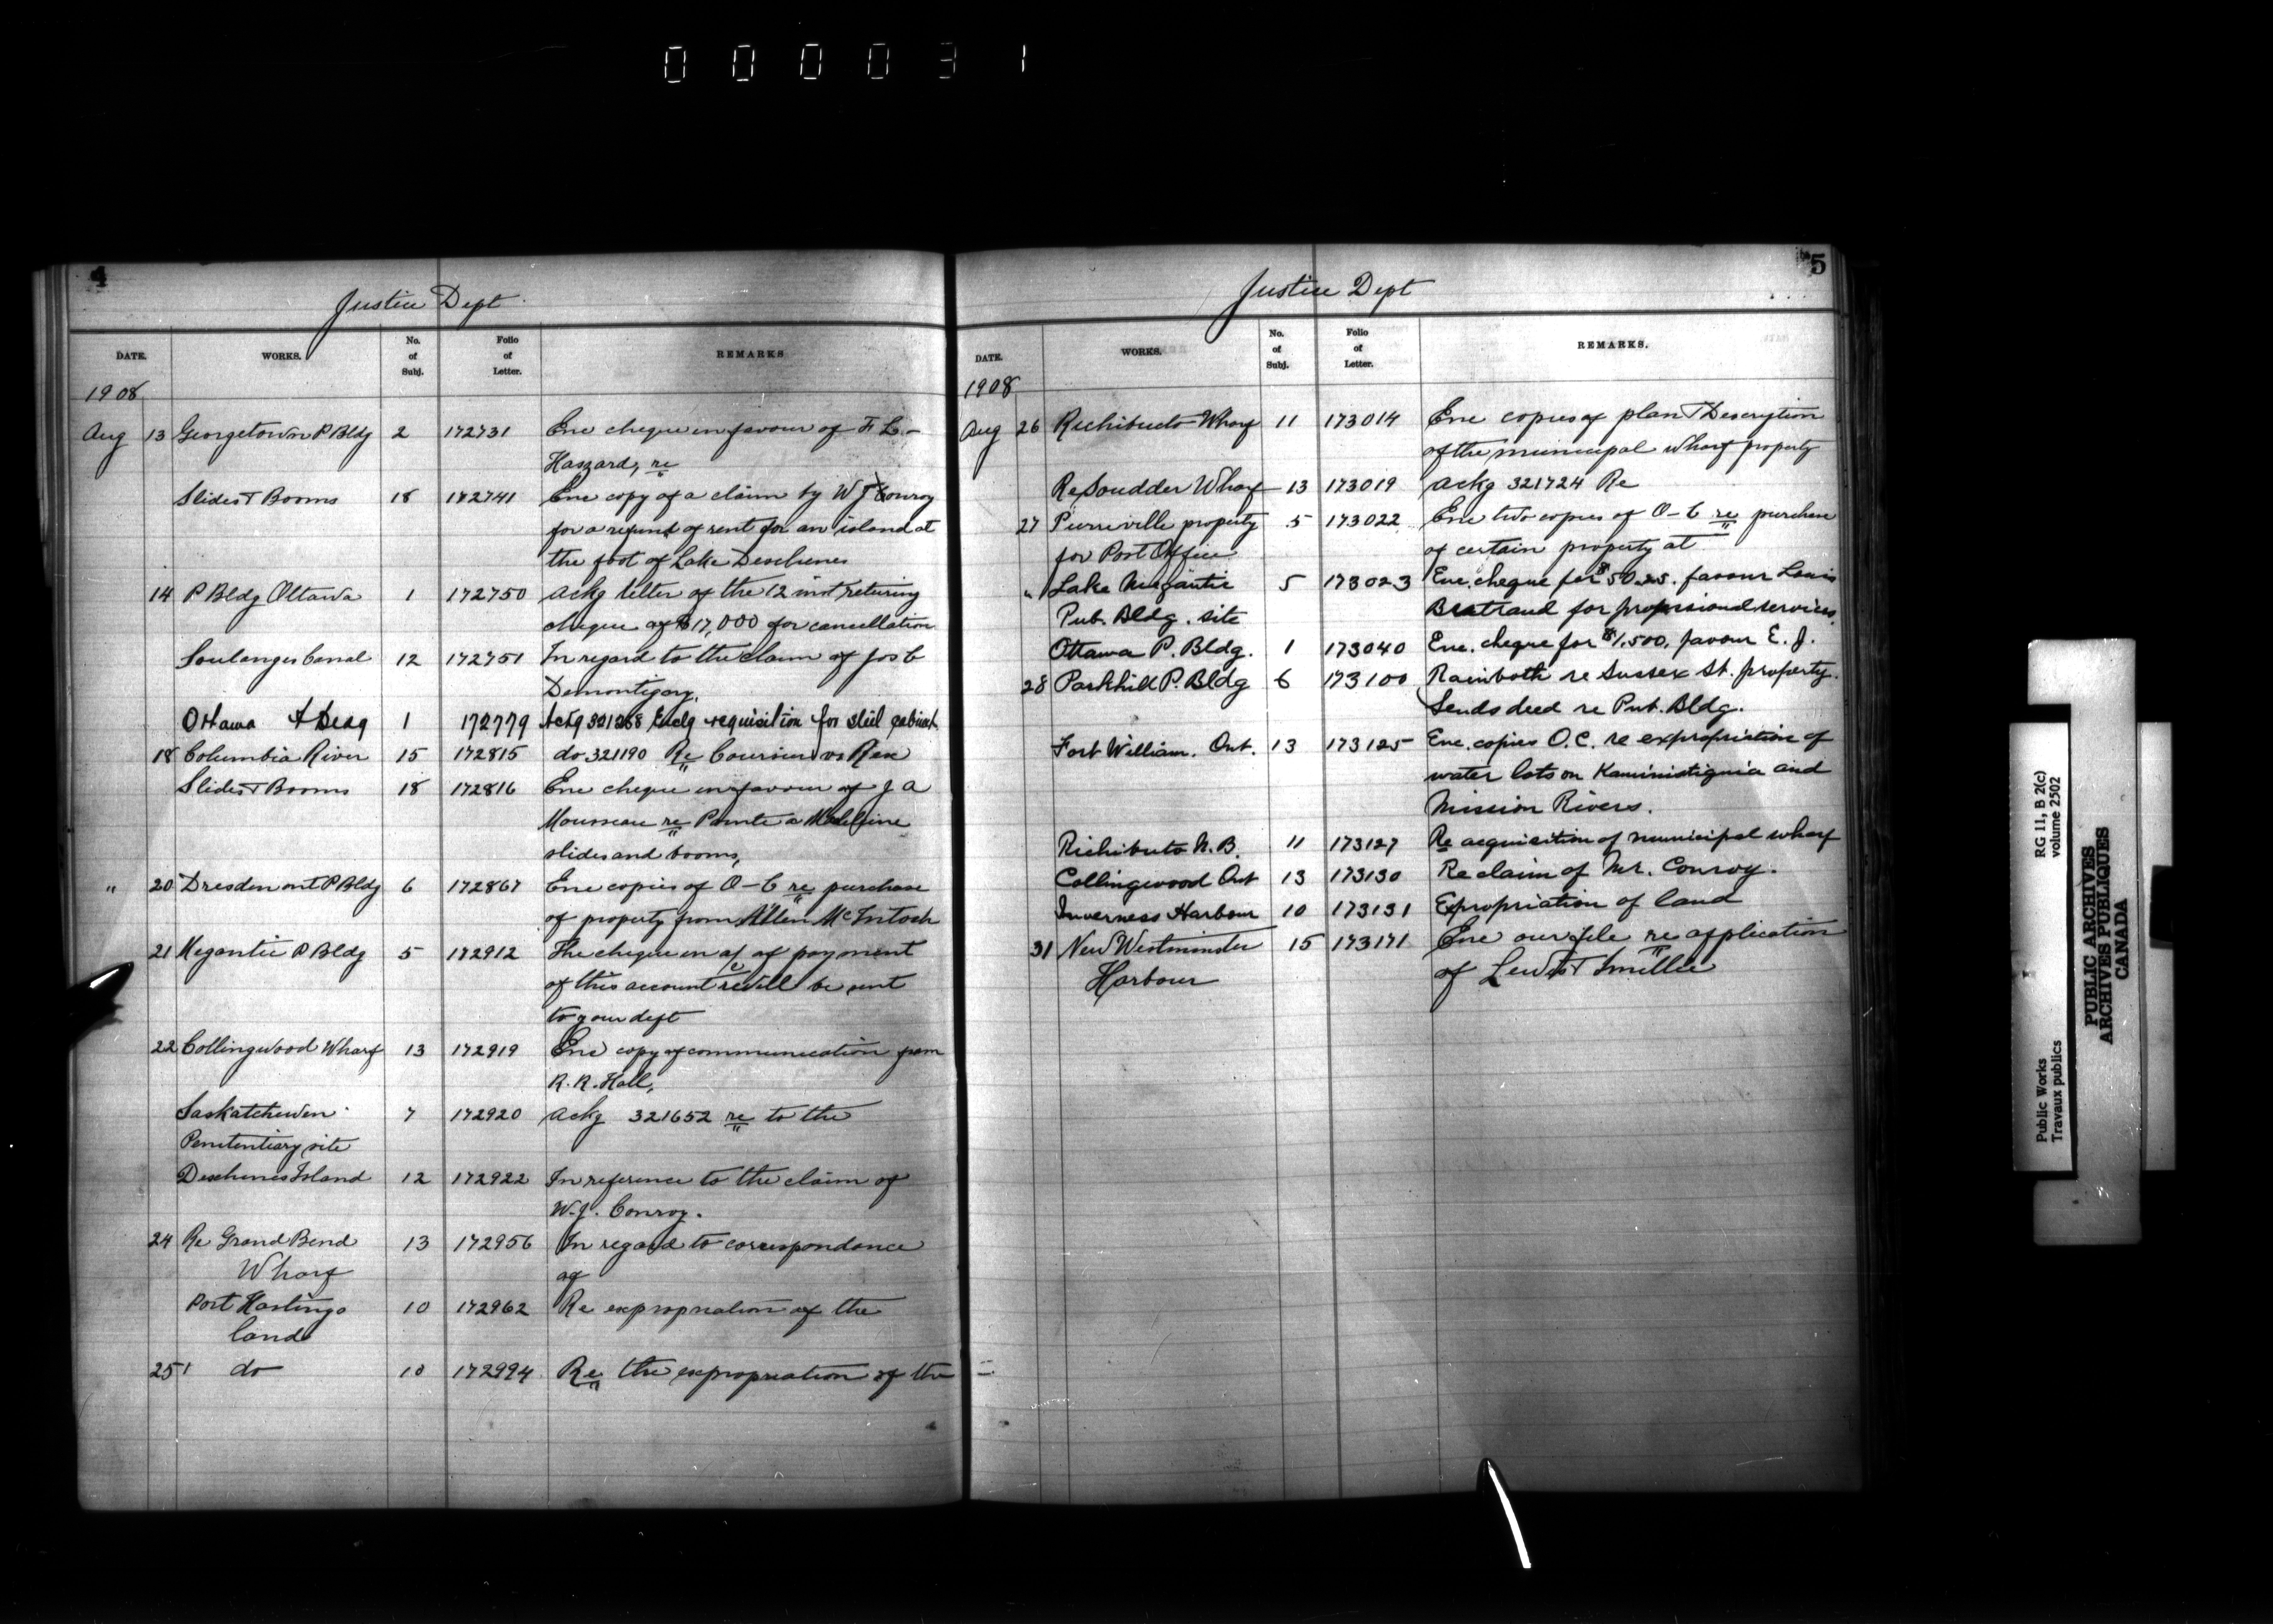 000031
4
Justice Dept
DATE. WORKS. No. of Subj. Folio of Letter. REMARKS
1908
Aug 13 Georgetown P Bldg 2 172731 Enc cheque in favour of F L-
Haszard, re
Slides & Booms 18 172741 Enc copy of a claim by W J Conroy
for a refund of rent for an island at
the foot of Lake Deschenes
14 P Bldg Ottawa 1 172750 Ackg letter of the 12 inst returing
cheque of $17,000 for cancellation
Soulanges Canal 12 172751 In regard to the claim of Jos C
Demontigny.
Ottawa 1 172779 Ackg 321268 Enclg requisition for steel cabinet
18 Columbia River 15 172815 do 321190 Re Coursier vs Rex
Slides & Booms 18 172816 Enc cheque in favour of J A
Mousseau re Pointe a Madeleine
slides and booms,
" 20 Dresden ont P Bldg 6 172867 Enc copies of O-C re purchase
of property from Allen McIntosh
21 Megantic P Bldg 5 172912 The cheque in of payment
of this account will be sent
to your dept
22 Collingwood Wharf 13 172919 Enc copy of communication from
R. R. Hall,
Saskatchewen 7 172920 Ackg 321652 re to the
Penetentiary site
Deschenes Island 12 172922 In reference to the claim of
W.J. Conroy.
24 Re Grand Bend 13 172956 In regard to correspondance
Wharf of
Port Hastings 10 172962 Re expropriation of the
land
25 do 10 172994 Re the expropriation of the
5
Justice Dept
DATE. WORKS. No. of Subj. Folio of Letter. REMARKS.
1908
Aug 26 Richibucto Wharf 11 173014 Enc copies of plan & Description
of the municipal wharf property
Re Scudder Wharf 13 173019 Ackg 321724 Re
27 Pierreville property 5 173022 Enc two copies of O-C re purchase
for Post Office of certain property at
" Lake Megantic 5 173023 Enc. cheque for $50.25. favour Louis
Pub. Bldg. site Bertrand for professional services.
Ottawa P. Bldg. 1 173040 Enc. cheque for $1,500, favour E. J.
28 Parkhill P. Bldg 6 173100 Rainboth re Sussex St. property.
Sends deed re Pub. Bldg.
Fort William. Ont. 13 173125 Enc. copies O.C. re expropriation of
water lots on Kaministiquia and
Mission Rivers.
Richibuto N.B. 11 173127 Re acquisition of municipal wharf
Collingwood Ont 13 173130 Re claim of Mr. Conroy.
Inverness Harbour 10 173131 Expropriation of land
31 New Westminster 15 173171 Enc our file re application
Harbour of Lewis & Smillie
Public Works
Travaux publics
RG 11, B 2(c)
volume 2502
PUBLIC ARCHIVES
ARCHIVES PUBLIQUES
CANADA